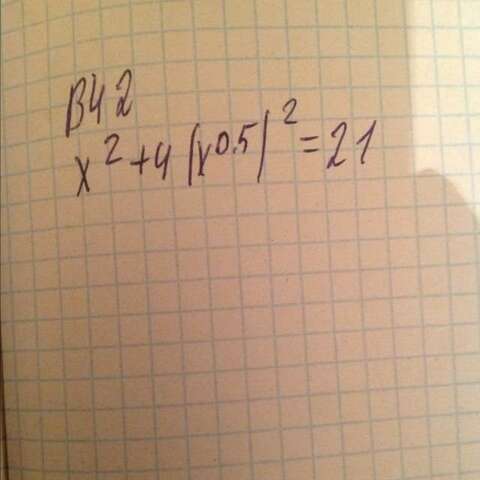 В42
x^2+4(x^0.5)^2=21